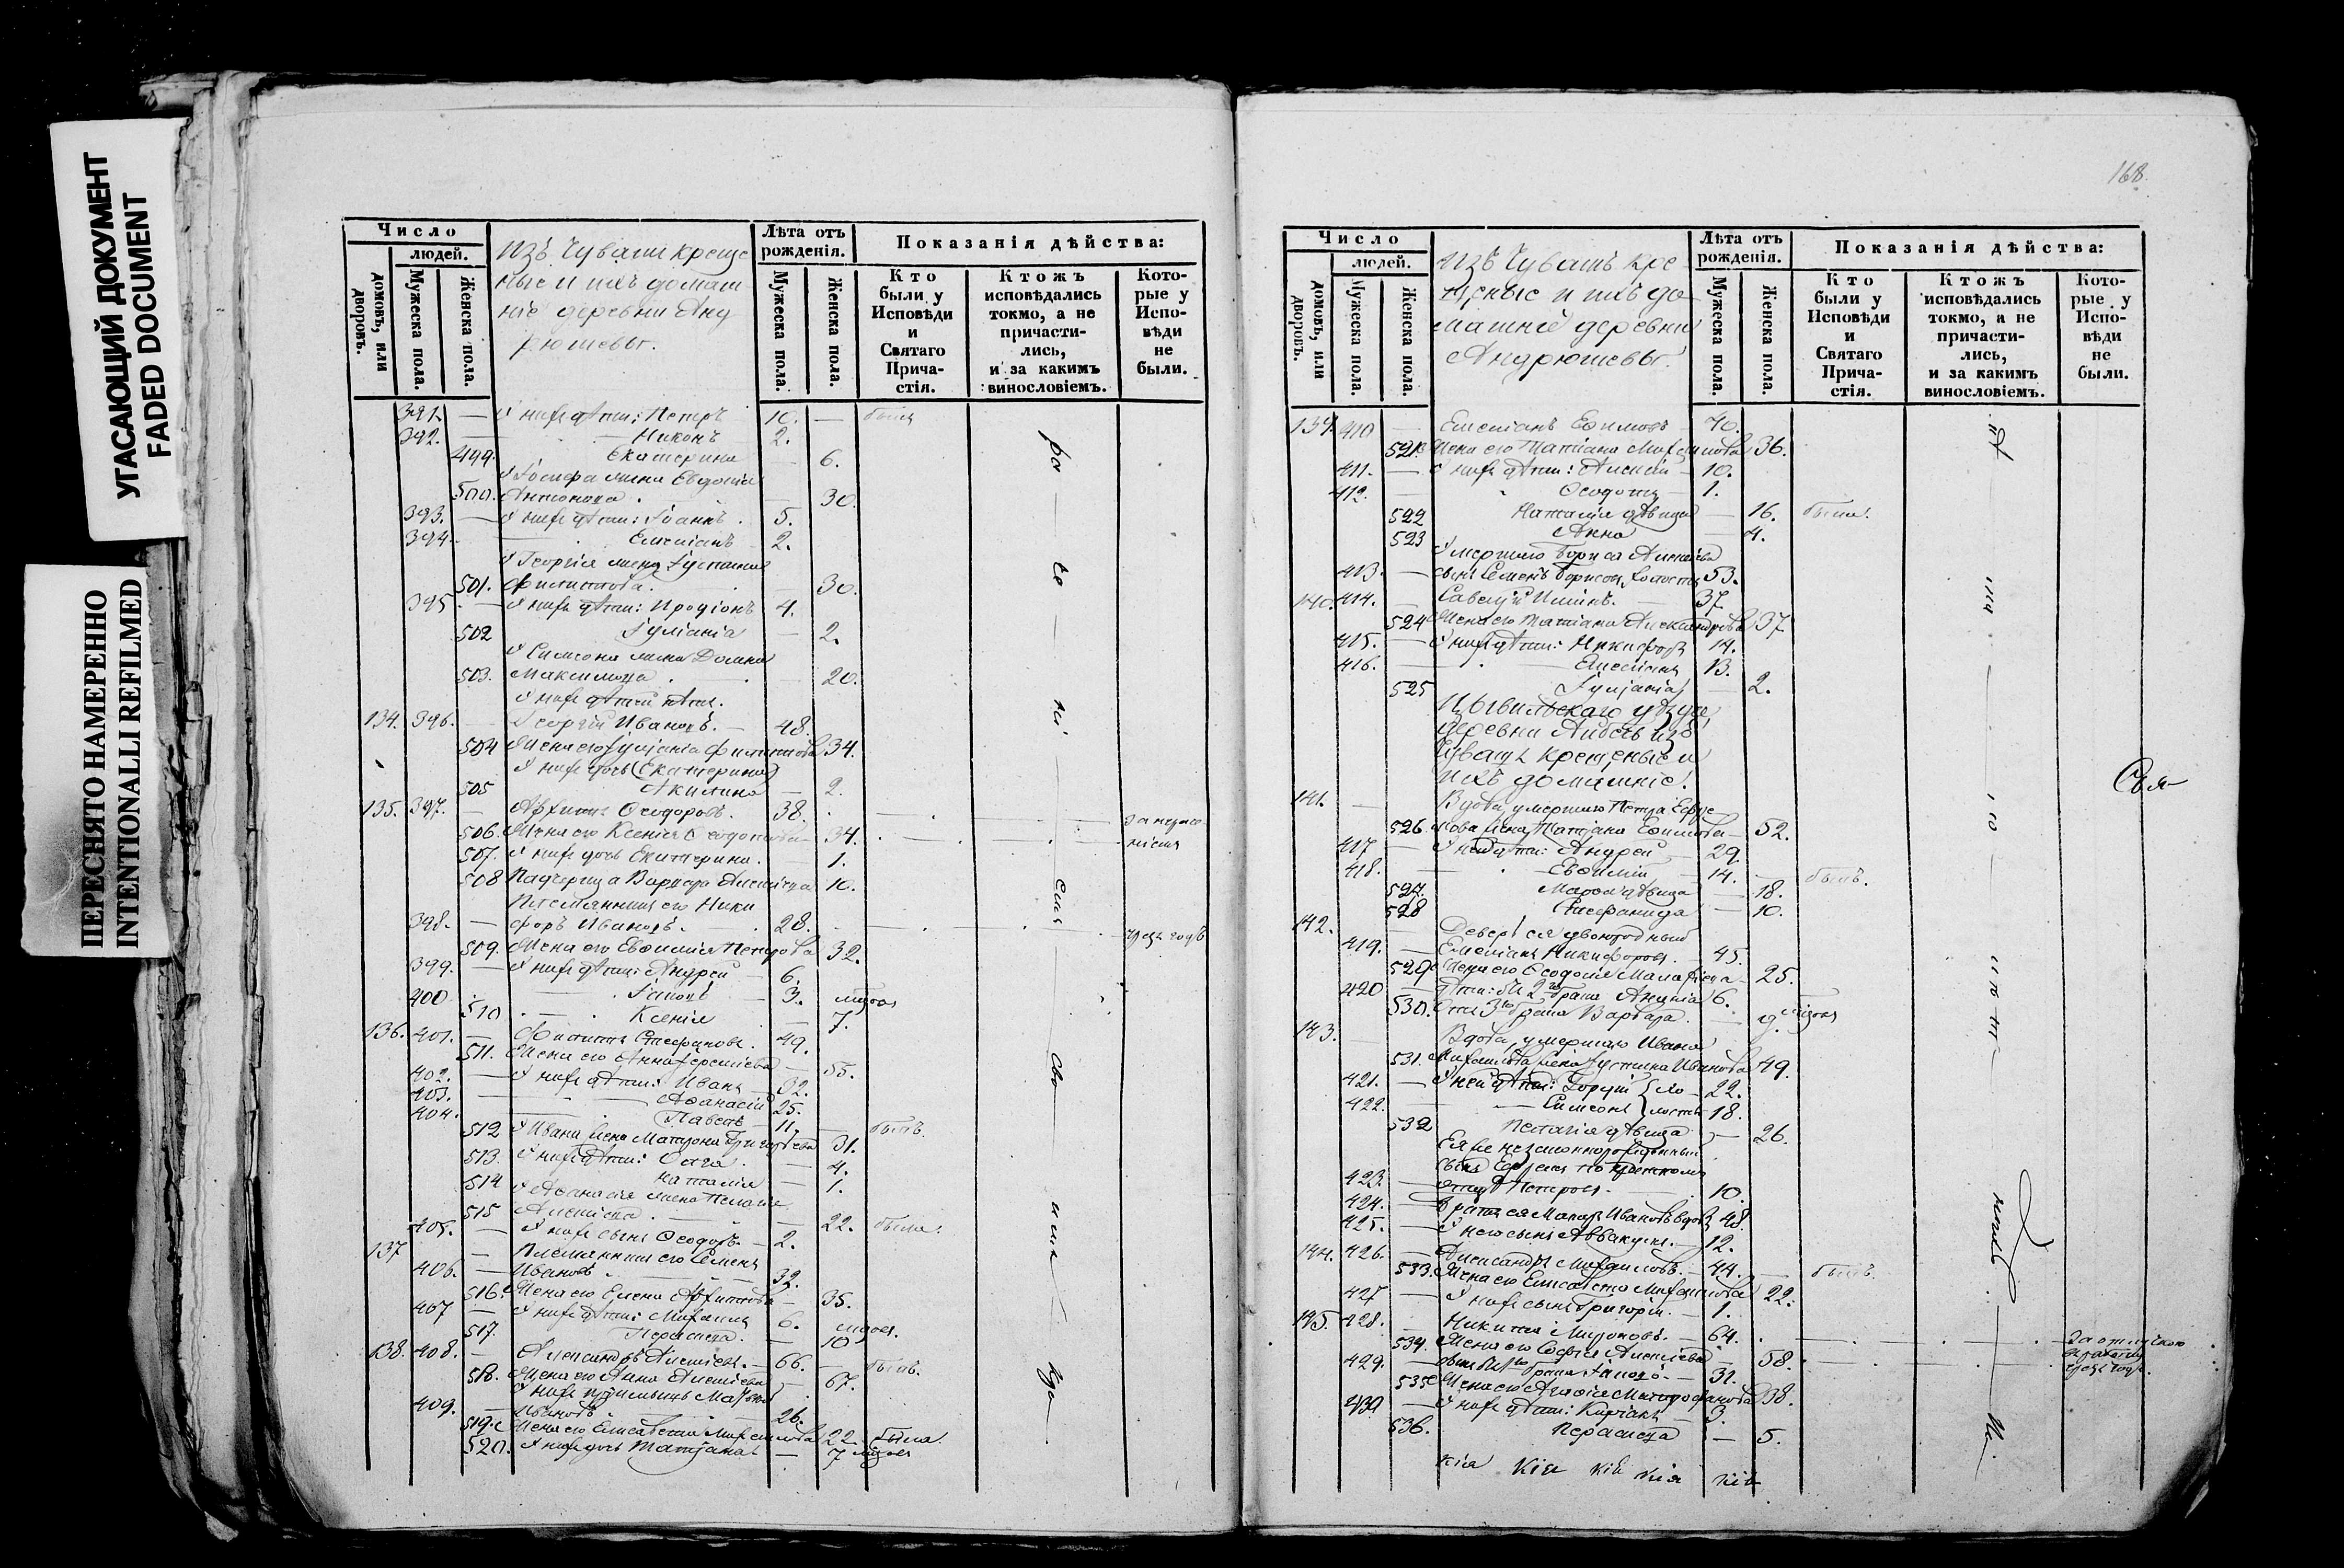 УГАСАЮЩИЙ ДОКУМЕНТ
FADED DOCUMENT
ПЕРЕСНЯТО НАМЕРЕННО
INTENTIONALLI REFILMED
Число
людей.
домовъ, или дворовъ.
Мужеска пола.
Женска пола.
Изъ Чувашъ креще
ные и ихъ домаш
ніе деревни Анд
рюшевы.
Лѣта отъ рожденія.
Мужеска пола.
Женска пола.
Показанія дѣйства:
Кто были у Исповѣди и Святаго Причастія.
Ктожъ исповѣдались токмо, а не причастились, и за какимъ винословіемъ.
Которые у Исповѣди не были.
391. — У нихъ дѣти: Петръ 10. — были
392. — Никонъ 2.
499. Екатерина — 6.
У Іосифа жена Евдокія
500. Антонова. — 30.
393. — У нихъ дѣти: Іоаннъ. 5.
394. — Емеліанъ 2.
У Георгія жена Іуліанія
501. Филиппова. — 30.
395. — У нихъ дѣти: Иродіонъ 4.
502 Іуліанія — 2.
У Симеона жена Домна
503. Максимова. 20.
У нихъ дѣтей нѣтъ.
134. 396. — Георгій Ивановъ. — 48.
504 Жена его Іуліанія Филиппова 34.
У нихъ дочь (Екатерина)
505 Акилина — 2.
135. 397. — Архипъ Ѳеодоровъ. 38.
506. Жена его Ксенія Ѳеодотова 34.
507. У нихъ дочь Екатерина. 1.
508 Падчерица Варвара Алексѣева 10.
Племянникъ его Ники
398. — форъ Ивановъ. 28.
509. Жена его Евѳимія Петрова 32.
399. — У нихъ дѣти: Андрей — 6.
400 Іаковъ — 3.
510 Ксенія — 7.
136. 401. — Филиппъ Стефановъ. 49.
511. Жена его Анна Іереміева — 55.
402. — У нихъ дѣти: Иванъ 32.
403. — Аѳанасій 25.
404. Павелъ — 11. былъ.
512 У Ивана жена Матрона Григорьева 31.
513. У нихъ дѣти: Ольга. — 4.
514 Наталія — 1.
У Аѳанасія жена Пелагія
515 Алексѣева. — 22. была.
405. — У нихъ сынъ Ѳеодоръ — 2.
137 — Племянникъ его Семенъ
406. — Ивановъ. 32.
516. Жена его Елена Архипова — 35.
407 — У нихъ дѣти: Михаилъ 6.
517. Параскева. — 10
138. 408. — Александръ Алексѣевъ. — 66. — былъ.
518. Жена его Анна Алексѣева — 67.
У нихъ пріемышъ Матвей
409. — Ивановъ 26.
519. Жена его Елисавета Михайлова 22. была.
520. У нихъ дочь Татіана — 7
168.
Число
людей.
домовъ, или дворовъ.
Мужеска пола.
Женска пола.
Изъ Чувашъ кре
щеные и ихъ до
машніе деревни
Андрюшевы.
Лѣта отъ рожденія.
Мужеска пола.
Женска пола.
Показанія дѣйства:
Кто были у Исповѣди и Святаго Причастія.
Ктожъ исповѣдались токмо, а не причастились, и за какимъ винословіемъ.
Которые у Исповѣди не были.
139. 410 — Емеліанъ Ефимовъ — 40.
521. Жена его Татіана Михайлова 36.
411. — У нихъ дѣти: Алексѣй — 10.
412. — Ѳеодотъ — 1.
522 Наталія дѣвица — 16. была.
523 Анна — 4.
Умершаго Бориса Алексѣева
413. — сынъ Семенъ Борисовъ холостъ 53.
140. 414. — Савелій Ильинъ. 37
524 Жена его Татіана Александрова 37
415. — У нихъ дѣти: Никифоръ 14.
416. Емеліанъ 13.
525 Іуліанія — 2.
Цывильскаго уѣзда,
деревни
Чувашъ крещеные и
ихъ домашніе.
141. — Вдова, умершаго Петра Ефре
526. мова жена Татіана Ефимова — 52.
417 — У ней дѣти: Андрей — 29.
418. — Евѳимій — 14. — былъ.
527. Марѳа дѣвица — 18.
528 Стефанида — 10.
142. Деверь ея двоюродный
419. — Емеліанъ Никифоровъ. — 45.
529 Жена его Ѳеодосія Малафеева — 25.
420 Дѣти: 2го брака Ананія 6.
530. 3го брака Варвара. 9.
143. Вдова, умершаго Ивана
531. Михайлова жена Іустина Иванова 49.
421. — У ней дѣти: Георгій } хо — 22.
422. — Симеонъ } лосты 18.
532 Пелагія дѣвица — 26.
Ея же незаконнорожденный
сынъ Ефремъ по крестному
423. — отцу Петровъ. 10.
424. — Братъ ея Макаръ Ивановъ вдовъ 48.
425. — У него сынъ Аввакумъ. — 12.
144. 426. — Александръ Михайловъ. — 44. — былъ.
533. Жена его Елисавета Михайлова 22.
427 — У нихъ сынъ Григорій. — 1.
145. 428. Никита Мироновъ. — 64.
534. Жена его Софія Алексѣева — 58.
429. — сынъ 1го брака Іаковъ — 31.
535 Жена его Агафія Митрофанова 38.
430 — У нихъ дѣти: Киріакъ — 3.
536. Параскева — 5.